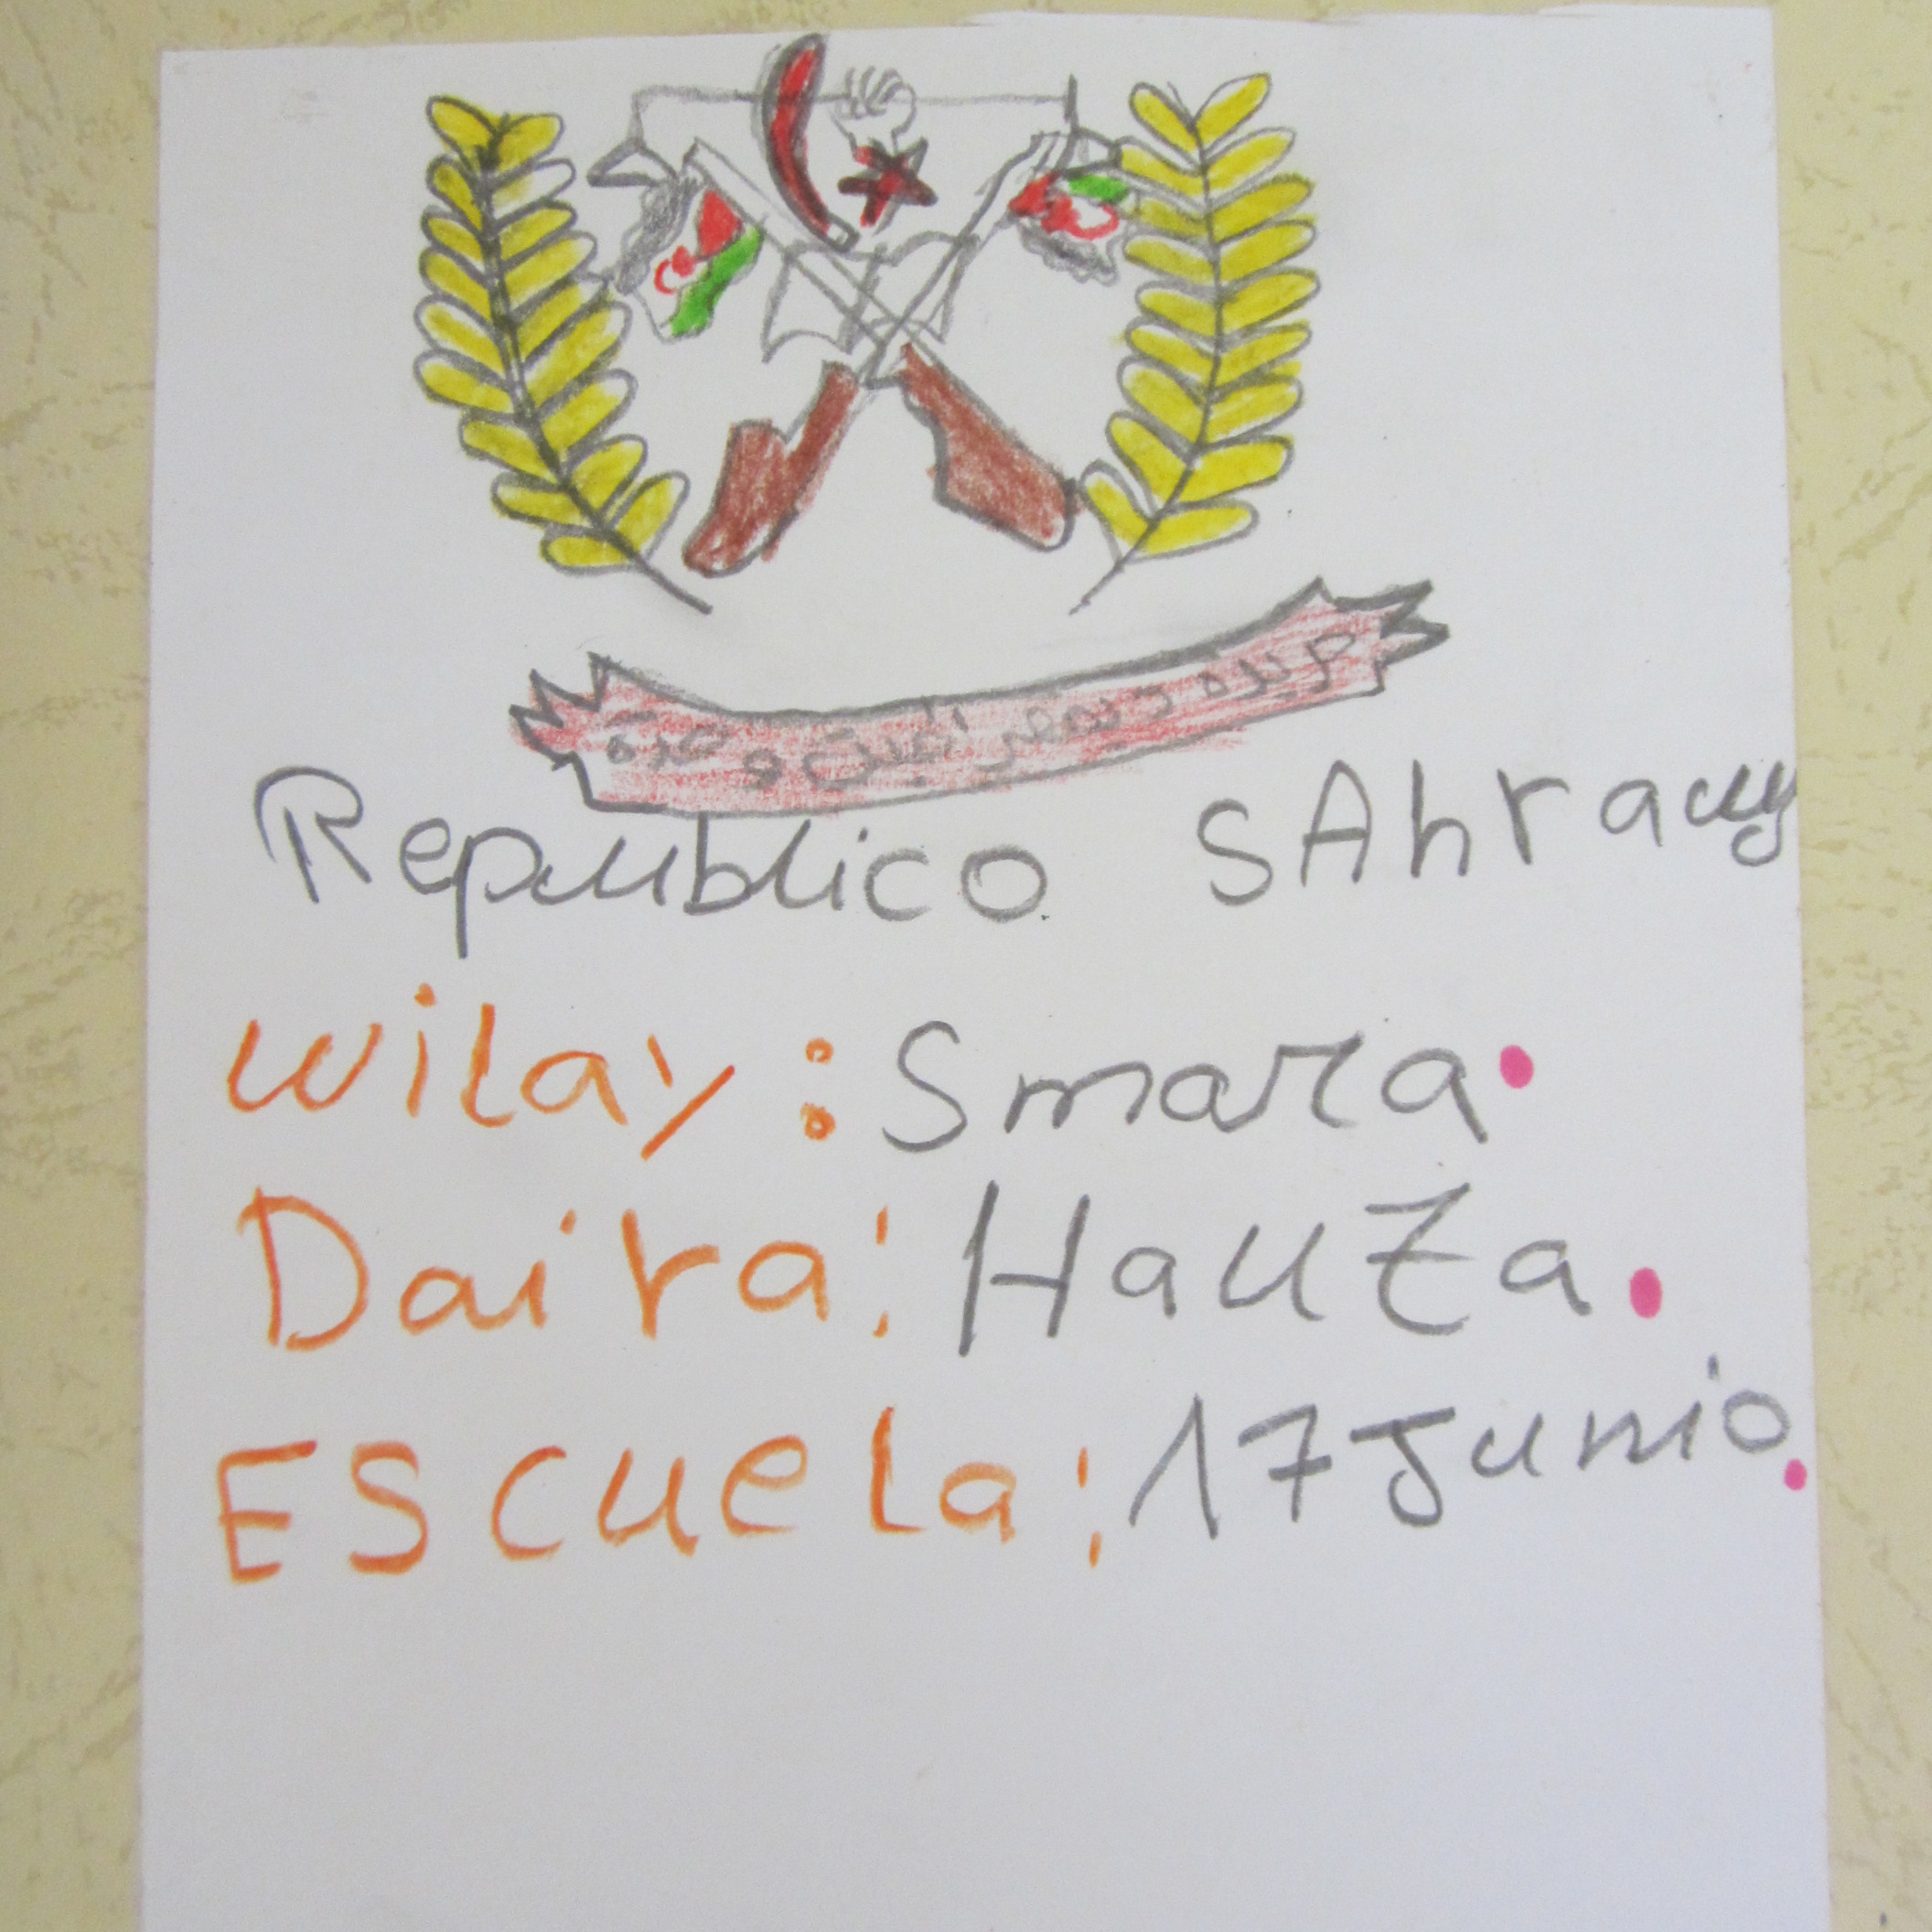 Republico SAhrauy
Wilay: Smara.
Daira: Hauza.
EScuela: 17 Junio.